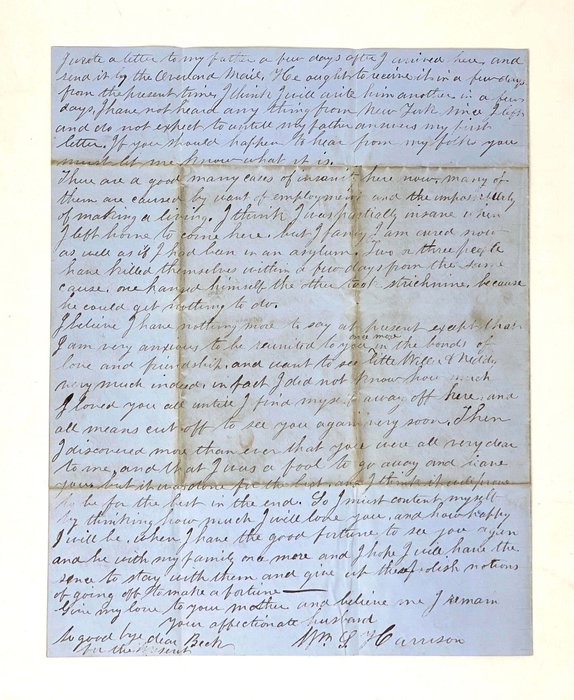 I wrote a letter to my father a few days after I arrived here, and
send it by the Overland Mail. He ought to receive it in a few days
from the present time, I think I will write him another in a few
days, I have not heard any thing from New York since I left
and do not expect to untill my father answers my first
letter. If you should happen to hear from my folks you
must let me know what it is.
There are a good many cases of insanity here now, many of
them are caused by want of employment and the impossibility
of making a living. I think I was partially insane when
I left home to come here, but I fancy I am cured now
as well as if I had been in an asylum. Two or three people
have killed themselves within a few days from the same
cause, one hanged himself the other took strichnine, because
he could get nothing to do.
I believe I have nothing more to say at present except that
I am very anxious to be reunited to you once more in the bonds of
love and friendship, and want to see little Willie &
very much indeed, in fact I did not know how much
I loved you all untill I find myself away off here, and
all means cut off to see you again very soon. Then
I discovered more than ever that you were all very dear
to me, and that I was a fool to go away and leave
you, but it was done for the best, and I think it will prove
to be for the best in the end. So I must content myself
by thinking how much I will love you, and how happy
I will be, when I have the good fortune to see you again
and be with my family once more and I hope I will have the
sence to stay with them and give up the foolish notions
of going off to make a fortune
Give my love to your mother and believe me I remain
Your affectionate husband
So good bye dear Beck
for the present
Wm S. Harrison